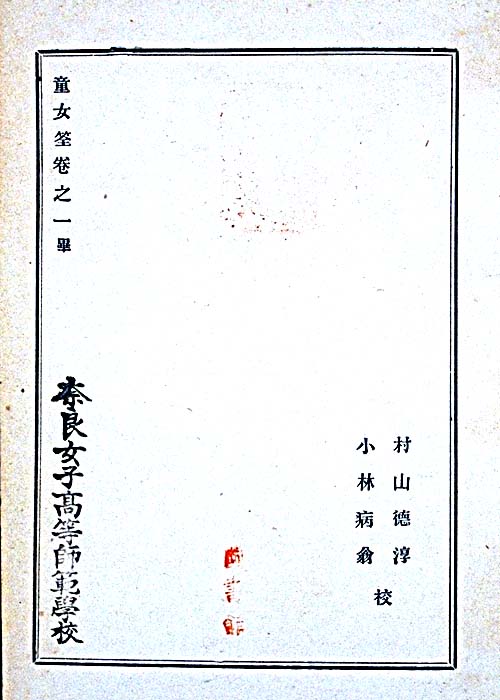 村山德淳
小林病翁
校
童女筌卷之一畢
奈良女子高等師範學校